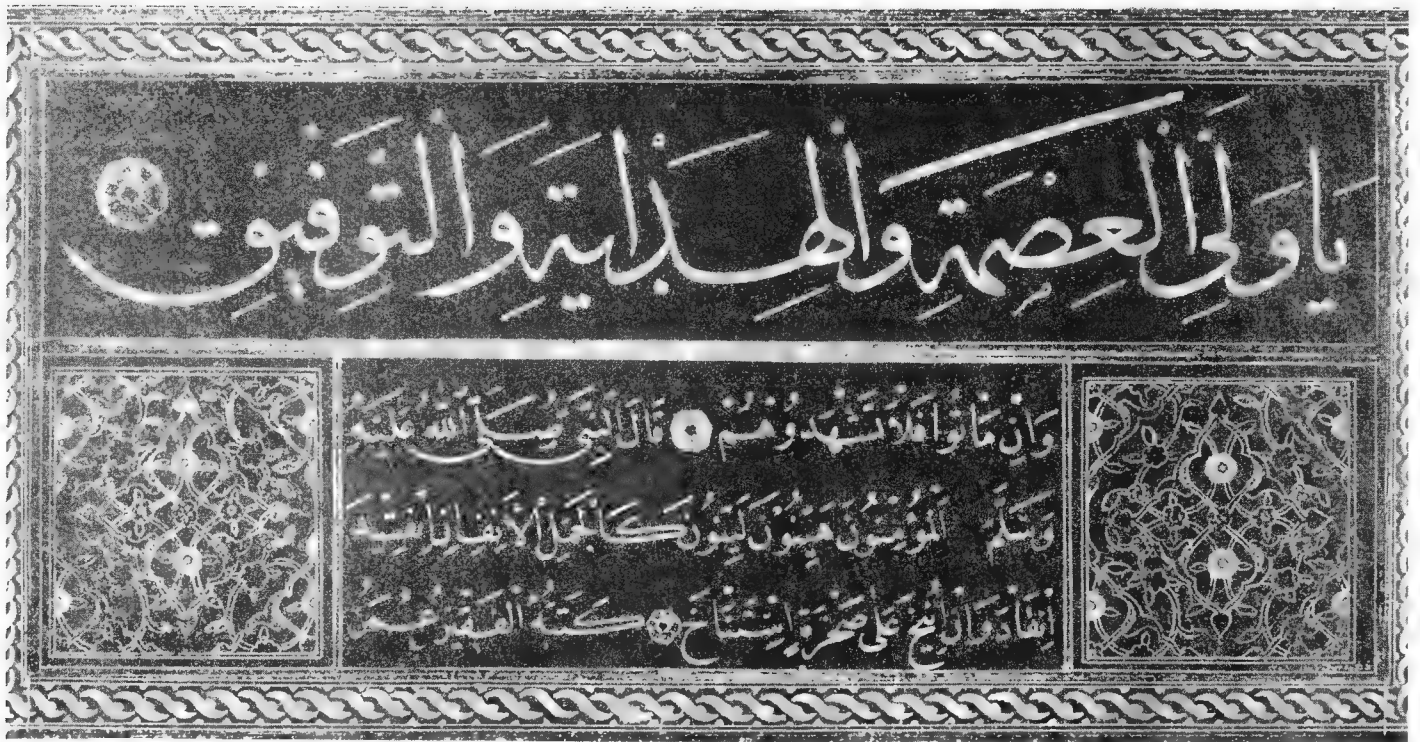 يَا وَلِيَّ الْعِصْمَةِ وَالْهِدَايَةِ وَالتَّوْفِيقِ
وَإِنْ مَاتُوا فَلَا تَشْهَدُوهُمْ قَالَ النَّبِيُّ صَلَّى اللهُ عَلَيْهِ
وَسَلَّمَ الْمُؤْمِنُونَ هَيِّنُونَ لَيِّنُونَ كَالْجَمَلِ الْأَنِفِ إِنْ قِيدَ
انْقَادَ وَإِنْ أُنِيخَ عَلَى صَخْرَةٍ اسْتَنَاخَ كَتَبَهُ الْفَقِيرُ